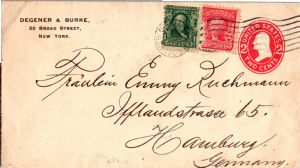 DEGENER & BURKE,
20 BROAD STREET,
NEW YORK.
UNITED STATES
2 2
TWO CENTS
Fräulein Emmy Ruchmann
Ifflandstrasse 65.
Hamburg
Germany.